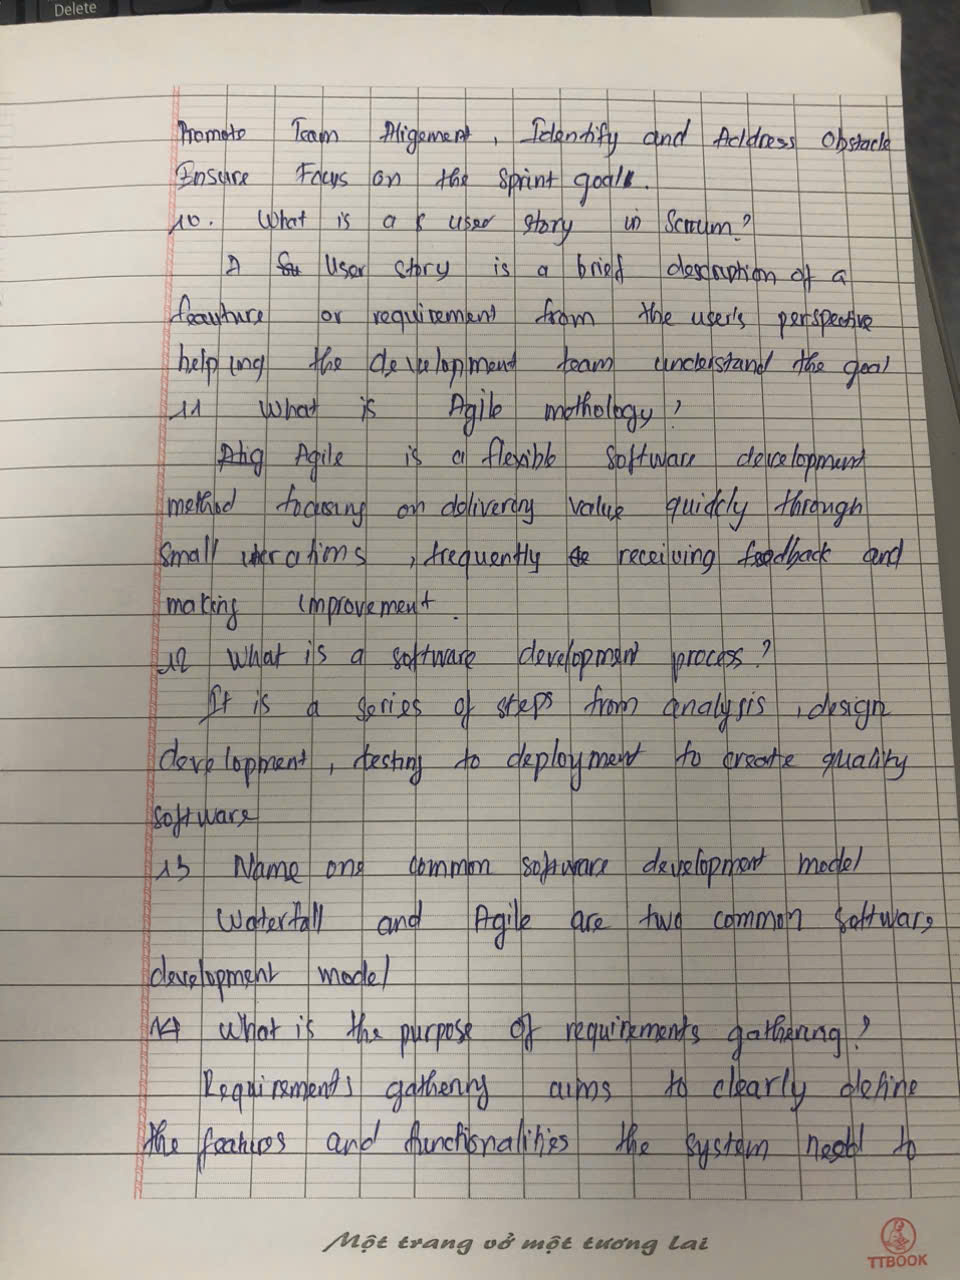 Delete
Promote Team Aligement, Identify and Address Obstacle
Ensure Focus on the sprint goals.
10. What is a user story in Scrum?
A User story is a brief description of a
feauture or requirement from the user's perspective
helping the development team understand the goal
11 What is Agile mothology?
Agile is a flexible software development
method focusing on delivering value quickly through
small iterations, frequently receiving feedback and
making improvement.
12 What is a software development process?
It is a series of steps from analysis, design
development, testing to deployment to create quality
software
13 Name one common software development model
Waterfall and Agile are two common software
development model
14 What is the purpose of requirements gathering?
Requirements gathering aims to clearly define
the features and functionalities the system need to
Một trang vở một tương lai
TTBOOK